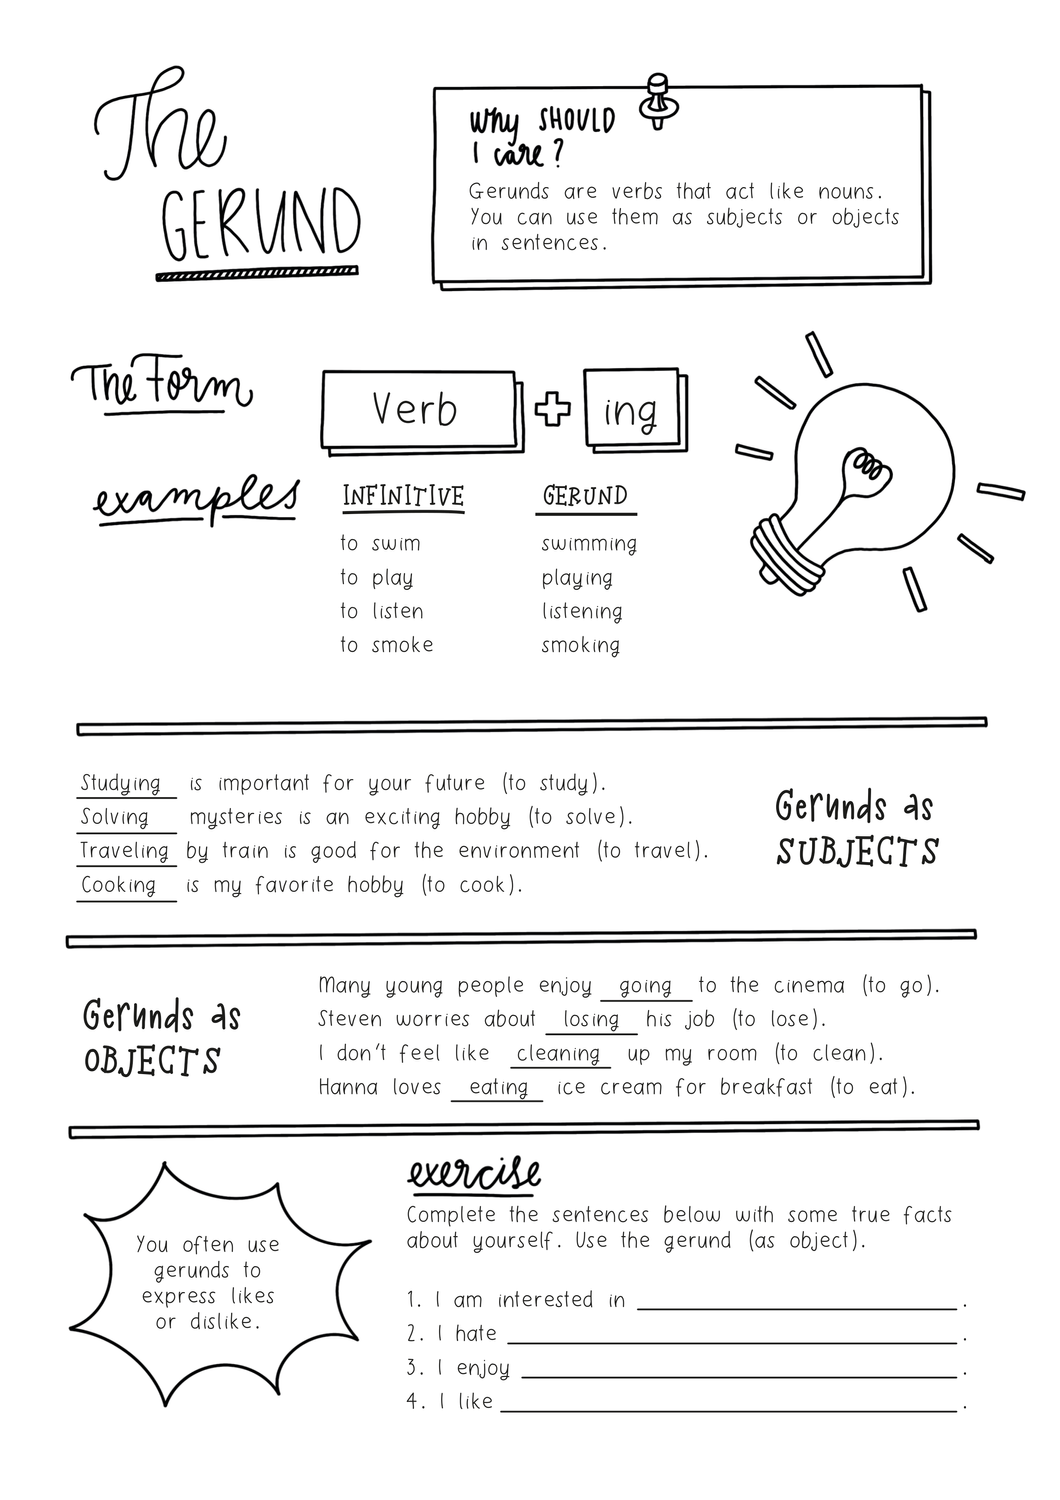 The
GERUND
Why SHOULD
I care?
Gerunds are verbs that act like nouns.
You can use them as subjects or objects
in sentences.
The Form
Verb + ing
examples
INFINITIVE GERUND
to swim swimming
to play playing
to listen listening
to smoke smoking
Studying is important for your future (to study).
Solving mysteries is an exciting hobby (to solve).
Traveling by train is good for the environment (to travel).
Cooking is my favorite hobby (to cook).
Gerunds as
SUBJECTS
Gerunds as
OBJECTS
Many young people enjoy going to the cinema (to go).
Steven worries about losing his job (to lose).
I don't feel like cleaning up my room (to clean).
Hanna loves eating ice cream for breakfast (to eat).
You often use
gerunds to
express likes
or dislike.
exercise
Complete the sentences below with some true facts
about yourself. Use the gerund (as object).
1. I am interested in ____________________.
2. I hate ____________________.
3. I enjoy ____________________.
4. I like ____________________.